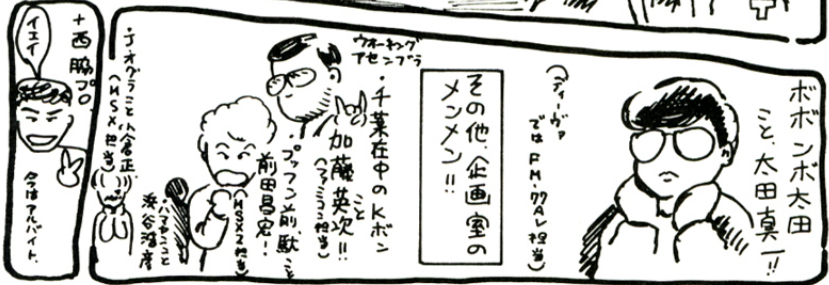 ボボンボ太田
こと、太田真一!!
(ディーヴァ
では FM・77AV 担当)
その他、企画室の
メンメン!!
ウオーキング
アセンブラ
・千葉在中のKボン
こと
加藤英次!!
(ファミコン担当)
・プッツン前、駄こと
前田昌宏!
(MSX2担当)
・ハマセンこと
浜谷沼彦
・Jオグラこと小倉正
(MSX担当)
+西脇プロ
イエイ
今はアルバイト。